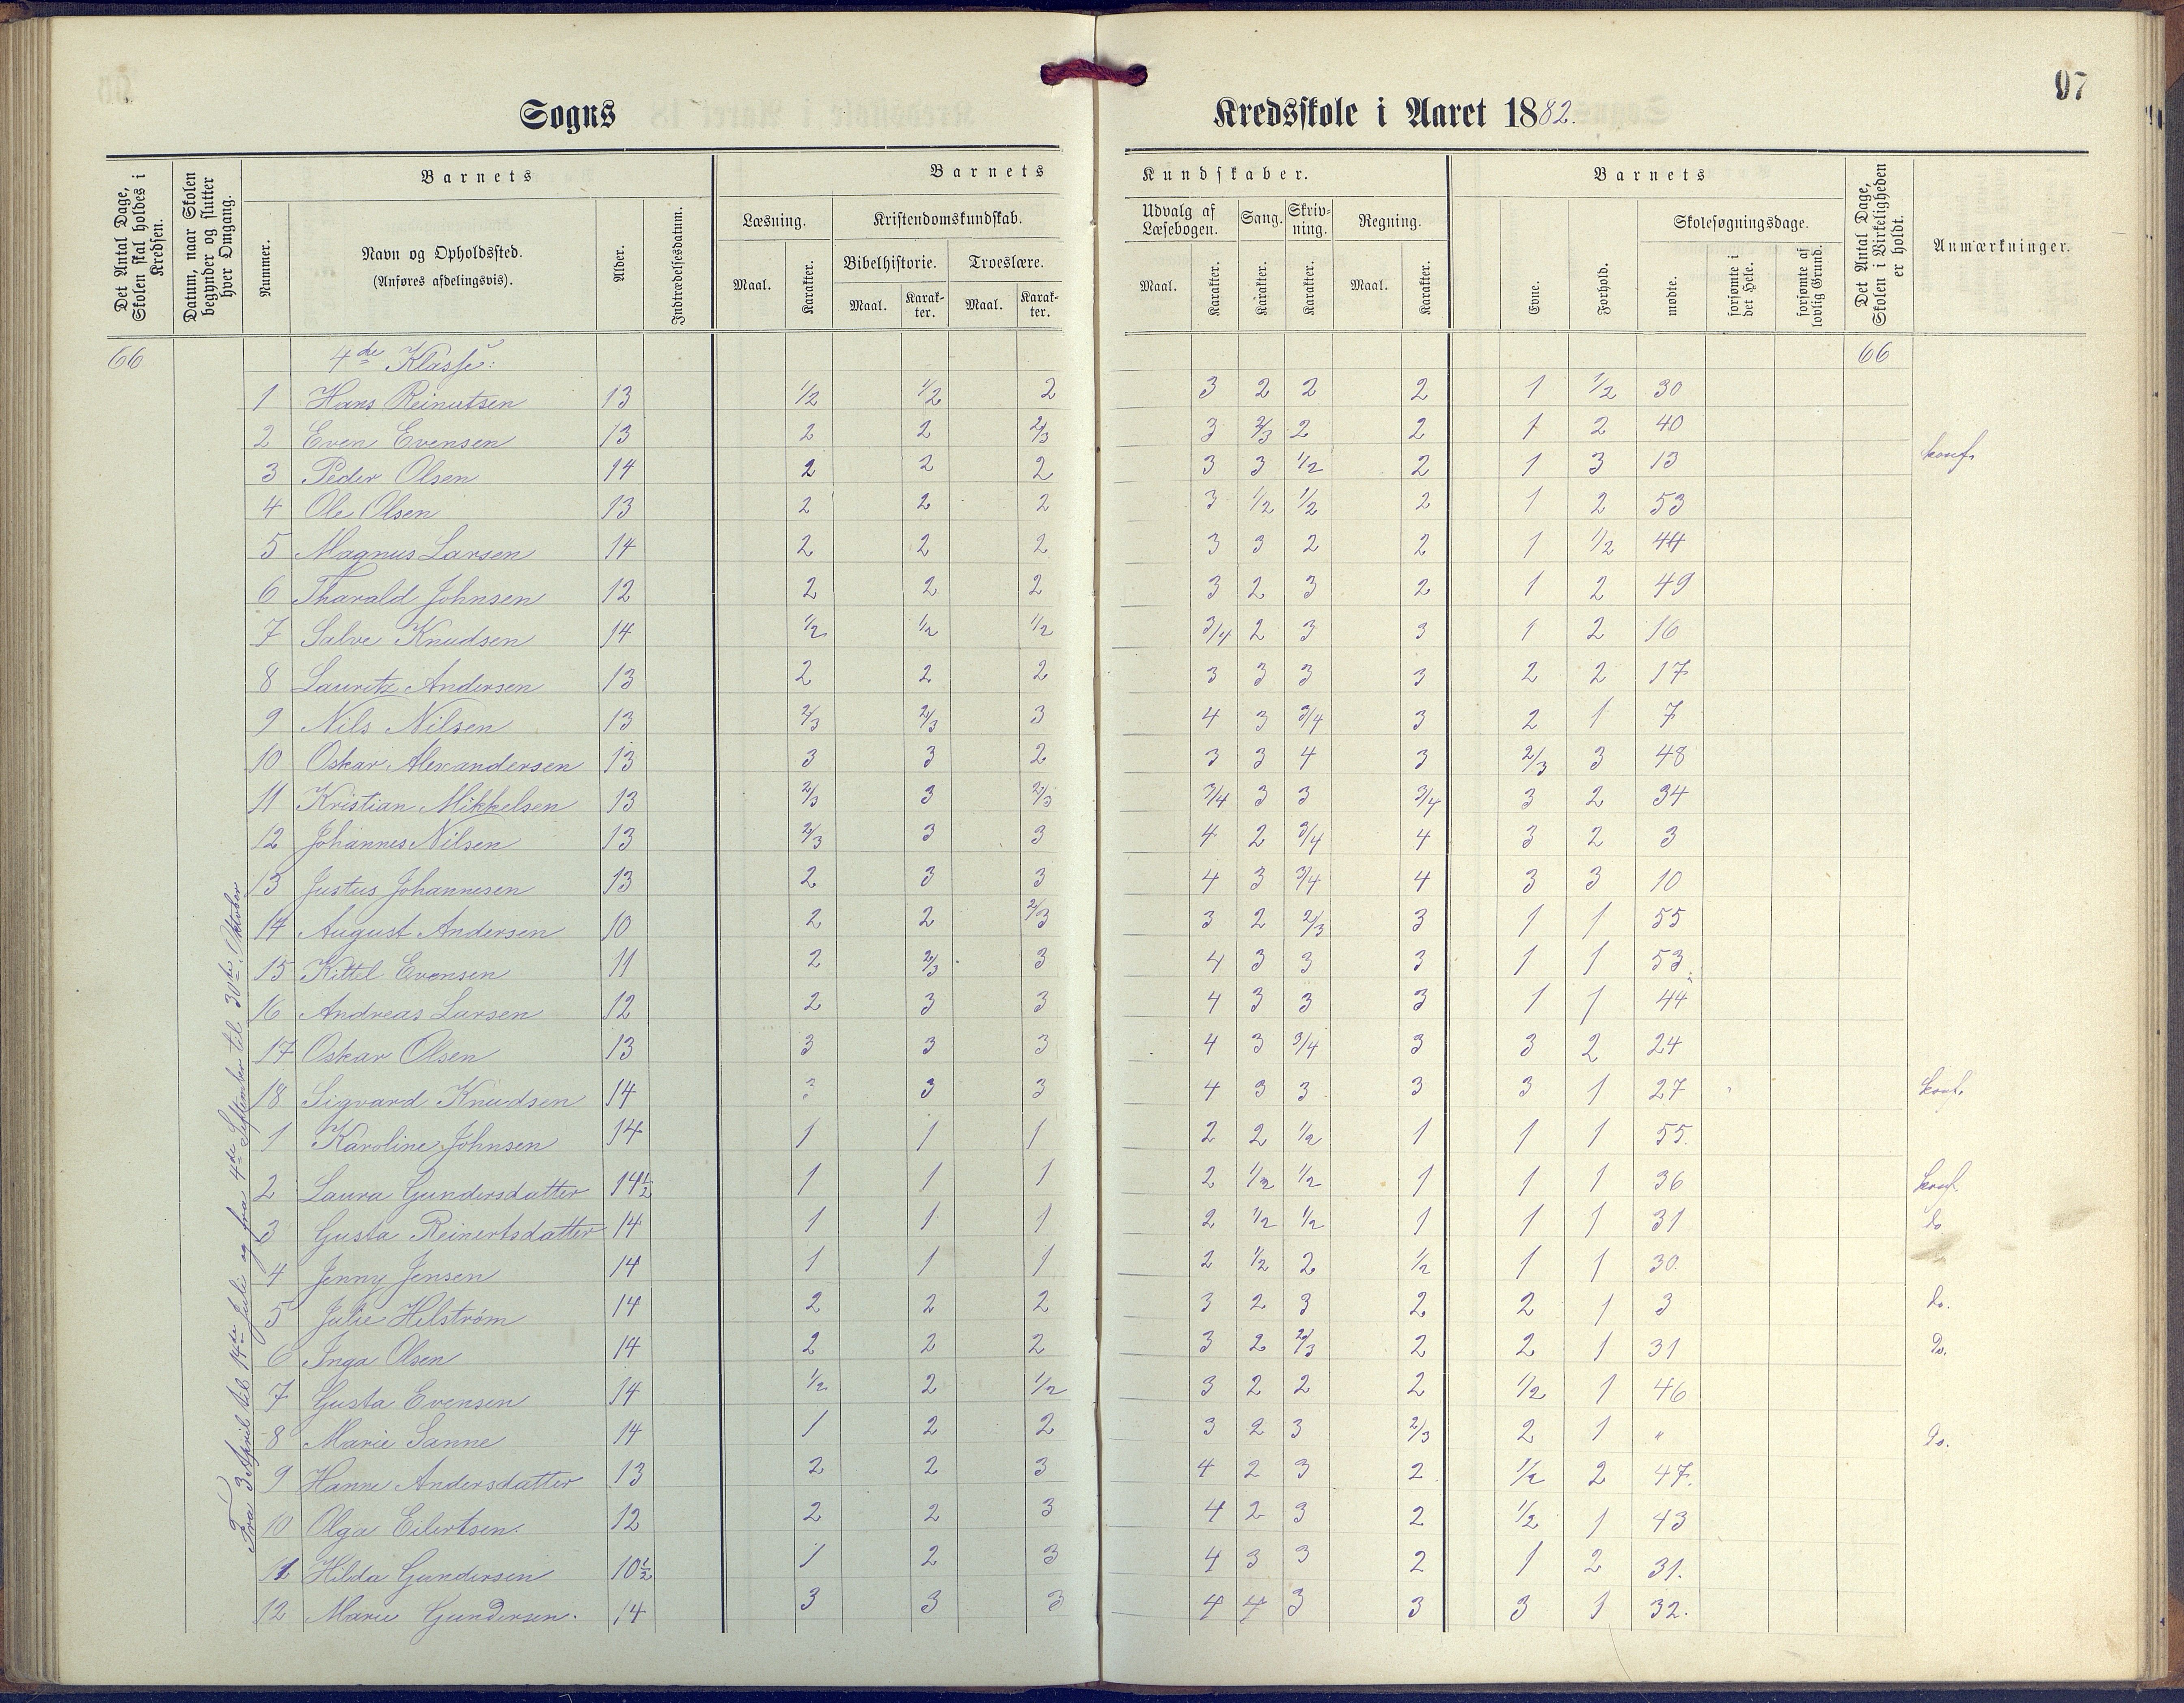 97
Sogns Kredsskole i Aaret 1882.
Det Antal Dage, Skolen skal holdes i Kredsen.
Datum, naar Skolen begynder og slutter hver Omgang.
Barnets
Nummer.
Navn og Opholdssted.
(Anføres afdelingsvis).
Alder.
Indtrædelsesdatum.
Barnets Kundskaber.
Læsning.
Maal. Karakter.
Kristendomskundskab.
Bibelhistorie. Troeslære.
Maal. Karakter. Maal. Karakter.
Udvalg af Læsebogen.
Maal. Karakter.
Sang. Karakter.
Skrivning. Karakter.
Regning.
Maal. Karakter.
Barnets
Evne. Forhold.
Skolesøgningsdage.
mødte. forsømte i det Hele. forsømte af lovlig Grund.
Det Antal Dage, Skolen i Virkeligheden er holdt.
Anmærkninger.
66 4de Klasse: 66
Fra 3 April til 14de Juli og fra 4de September til 30te Oktober
1 Hans Reinertsen 13 1/2 1/2 2 3 2 2 2 1 1/2 30
2 Even Evensen 13 2 2 2/3 3 2/3 2 2 1 2 40
3 Peder Olsen 14 2 2 2 3 3 1/2 2 1 3 13 konf.
4 Ole Olsen 13 2 2 2 3 1/2 1/2 2 1 2 53
5 Magnus Larsen 14 2 2 2 3 3 2 2 1 1/2 44
6 Tharald Johnsen 12 2 2 2 3 2 3 2 1 2 49
7 Salve Knudsen 14 1/2 1/2 1/2 3/4 2 3 3 1 2 16
8 Lauritz Andersen 13 2 2 2 3 3 3 3 2 2 17
9 Nils Nilsen 13 2/3 2/3 3 4 3 3/4 3 2 1 7
10 Oskar Alexandersen 13 3 3 2 3 3 4 3 2/3 3 48
11 Kristian Mikkelsen 13 2/3 3 2/3 3/4 3 3 3/4 3 2 34
12 Johannes Nilsen 13 2/3 3 3 4 2 3/4 4 3 2 3
13 Justus Johannesen 13 2 3 3 4 3 3/4 4 3 3 10
14 August Andersen 10 2 2 2/3 3 2 2/3 3 1 1 55
15 Kittel Evensen 11 2 2/3 3 4 3 3 3 1 1 53
16 Andreas Larsen 12 2 3 3 4 3 3 3 1 1 44
17 Oskar Olsen 13 3 3 3 4 3 3/4 3 3 2 24
18 Sigvard Knudsen 14 3 3 3 4 3 3 3 3 1 27 konf.
1 Karoline Johnsen 14 1 1 1 2 2 1/2 1 1 1 55.
2 Laura Gundersdatter 14½ 1 1 1 2 1/2 1/2 1 1 1 36 konf.
3 Gusta Reinertsdatter 14 1 1 1 2 1/2 1/2 1 1 1 31 do
4 Jenny Jensen 14 1 1 1 2 1/2 2 1/2 1 1 30.
5 Julie Helstrøm 14 2 2 2 3 2 3 2 2 1 3 do.
6 Inga Olsen 14 2 2 2 3 2 2/3 2 2 1 31 Do.
7 Gusta Evensen 14 1/2 2 1/2 3 2 2 2 1/2 1 46
8 Marie Sanne 14 1 2 2 3 2 3 2/3 2 1 " Do.
9 Hanne Andersdatter 13 2 2 3 4 2 3 2 1/2 2 47.
10 Olga Eilertsen. 12 2 2 3 4 2 3 2 1/2 1 43
11 Hilda Gundersen 10½ 1 2 3 4 3 3 2 1 2 31.
12 Marie Gundersen. 14 3 3 3 4 4 3 3 3 1 32.